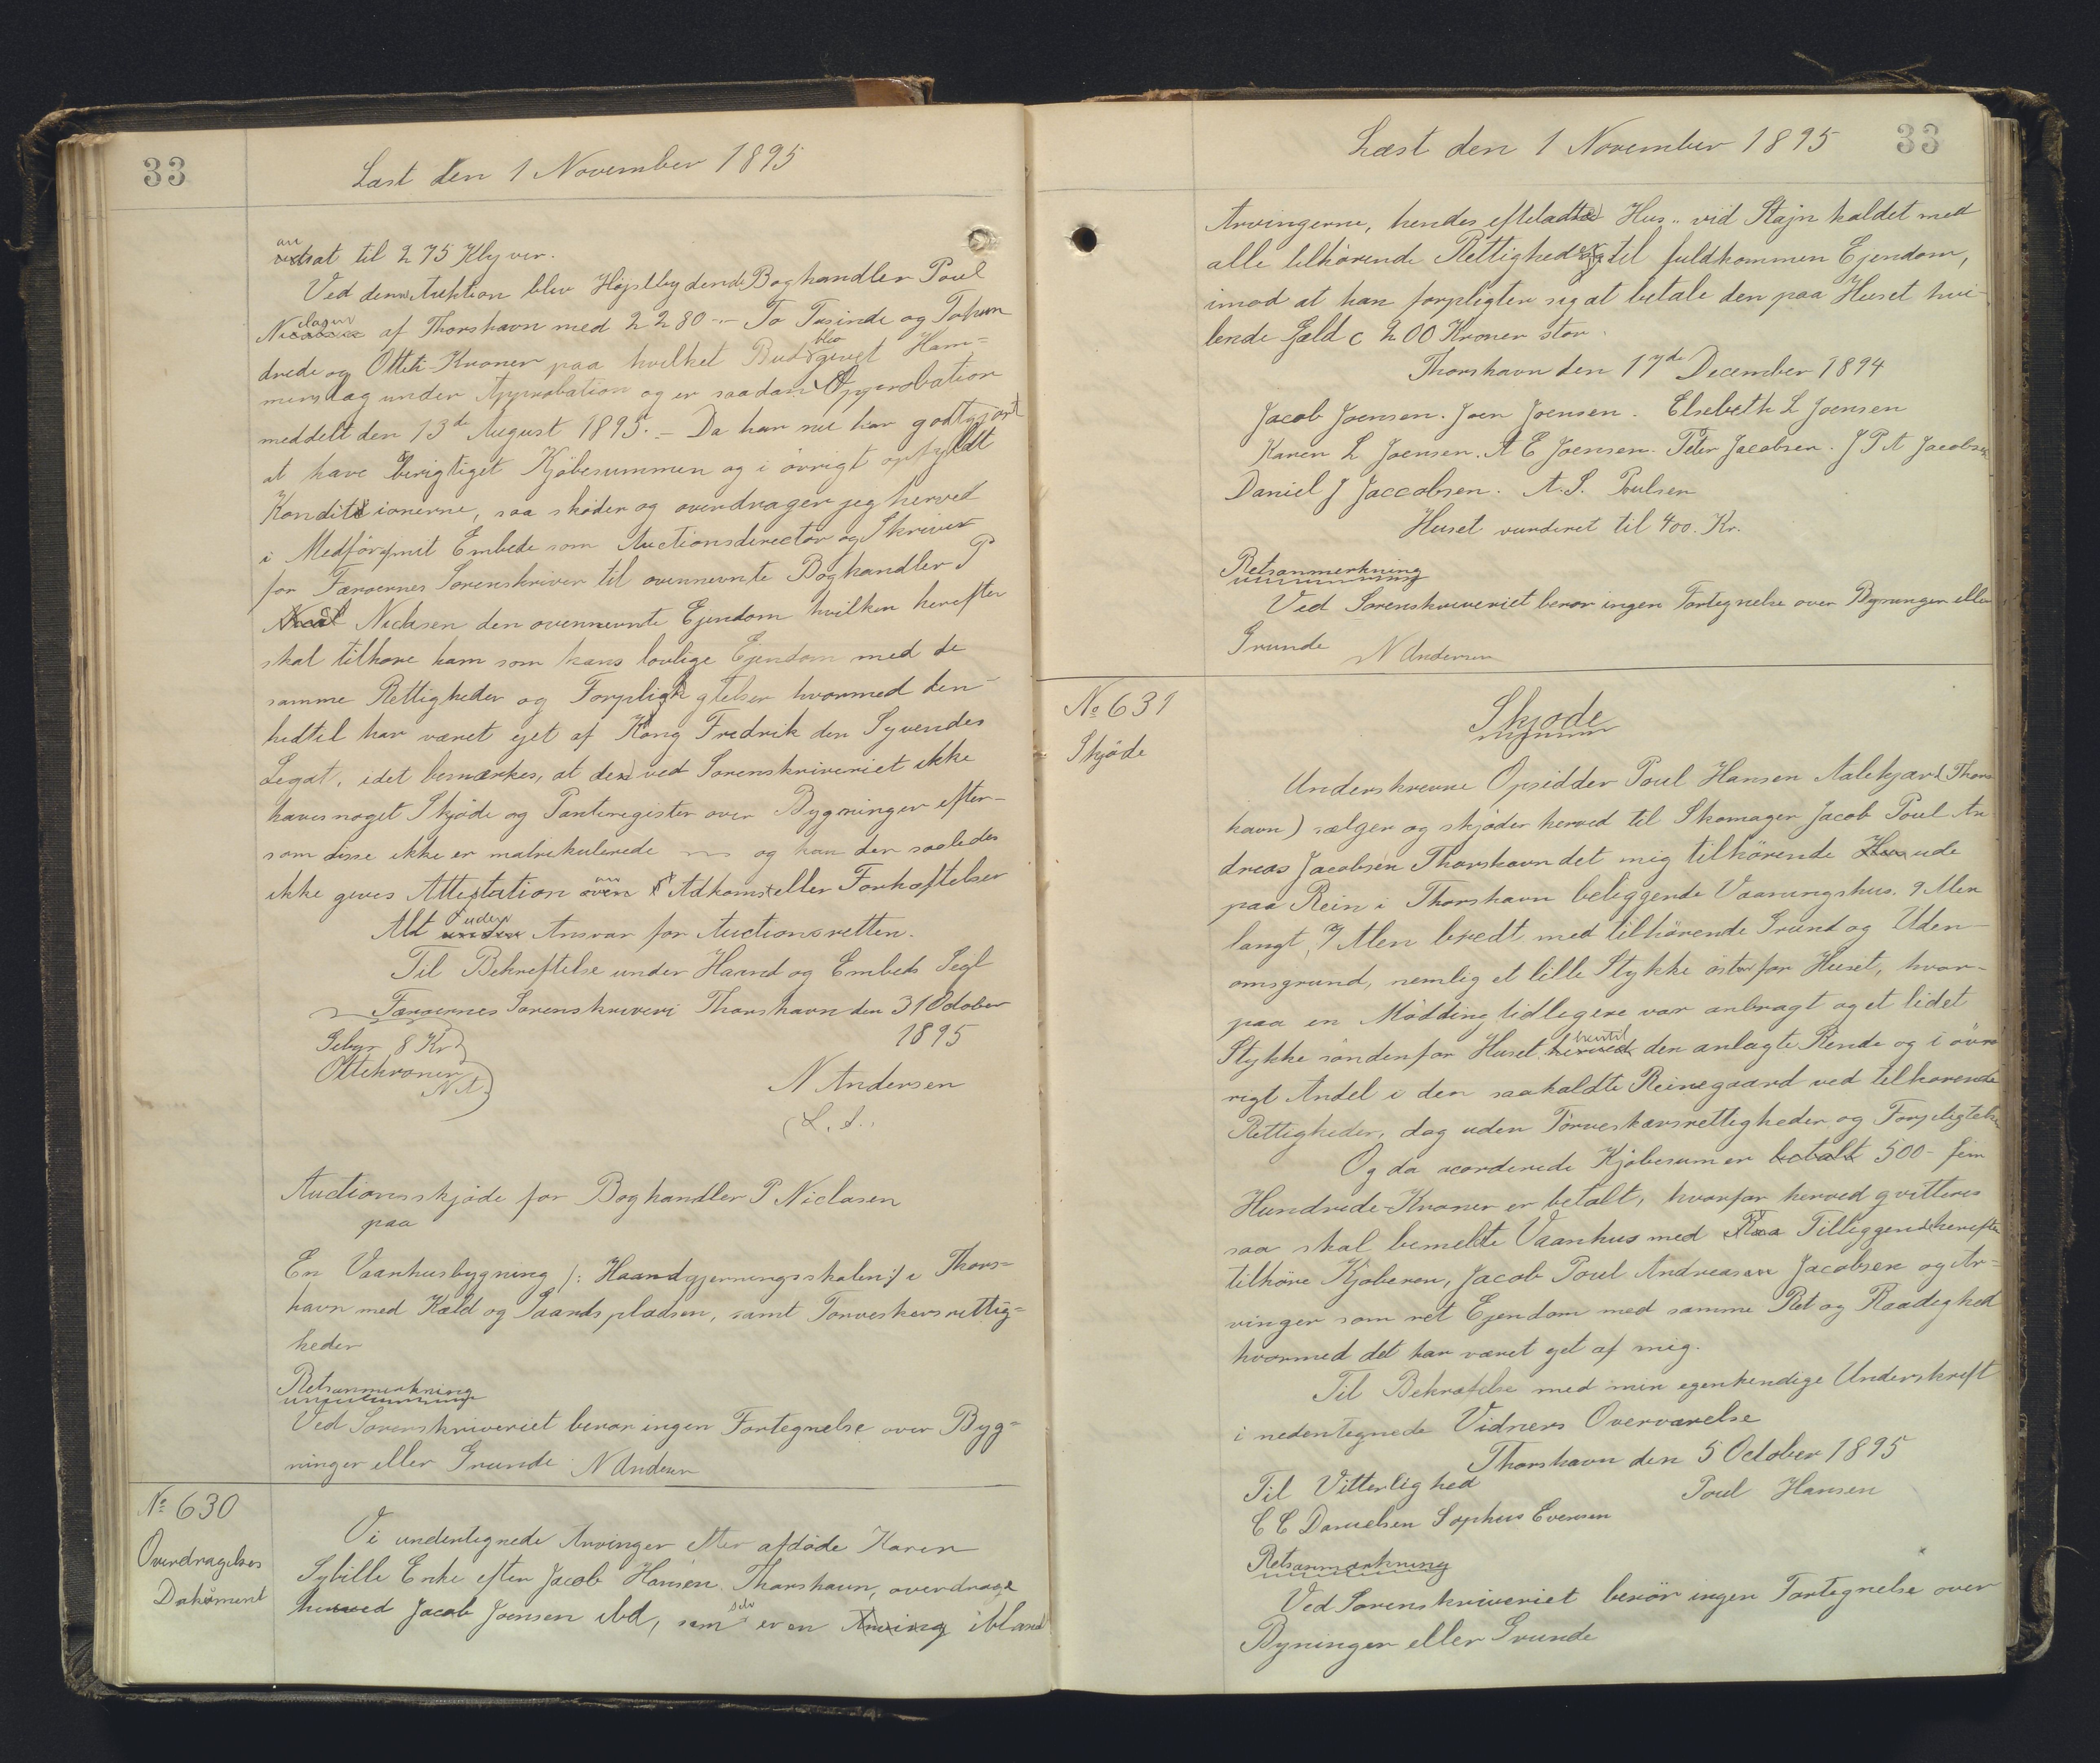 33
Læst den 1 November 1895
ansat til 275 Klyver.
Ved denne Auktion blev Højstbydende Boghandler Poul
Niclasen af Thorshavn med 2280 - To Tusinde og Tohun
drede og Otteti Kroner paa hvilket Bud blev givet Ham-
merslag under Approbation og er saadan Approbation
meddelt den 13de August 1895. - Da han nu har godtgjort
at have berigtiget Kjøbesummen og i øvrigt opfyldt
Konditionerne, saa skøder og overdrager jeg herved
i Medfør af mit Embede som Auctionsdirector og Skriver
for Færoernes Sorenskriver til ovennevnte Boghandler P
Niclasen den ovennevnte Ejendom hvilken herefter
skal tilhøre ham som hans lovlige Ejendom med de
samme Rettigheder og Forpligtelser hvormed den
hidtil har været ejet af Kong Fredrik den Syvendes
Legat, idet bemærkes, at der ved Sorenskriveriet ikke
haves noget Skjøde og Panteregister over Bygninger efter-
som disse ikke er matrikulerede og kan der saaledes
ikke gives Attestation om Adkomst eller Forhæftelser
Alt uden Ansvar for Auctionsretten.
Til Bekreftelse under Haand og Embeds Segl
Færoernes Sorenskriveri Thorshavn den 31 October
1895
Gebyr 8 Kr
Ottekroner
N.A.
N Andersen
(L. S.
Auctionsskjøde for Boghandler P Niclasen
paa
En Vaanhusbygning /: Haandgjerningsskolen :/ i Thors=
havn med Kæld og Gaardspladsen, samt Torveskærsrettig=
heder
Retsanmerkning
Ved Sorenskriveriet beror ingen Fortegnelse over Byg=
ninger eller Grunde N Andersen
No 630
Overdragelses
Dokument
Vi undertegnede Arvinger efter afdøde Karen
Sybille Enke efter Jacob Hansen Thorshavn, overdrage
herved Jacob Joensen ibd, som selv er en Arving ibland
Læst den 1 November 1895
33
Arvingerne, hendes efteladte Hus, vid Stajn kaldet med
alle tilhørende Rettigheder til fuldkommen Ejendom,
imod at han forpligter sig at betale den paa Huset hvi-
lende Gæld c 200 Kroner stor.
Thorshavn den 17de December 1894
Jacob Joensen. Joen Joensen. Elsebeth L Joensen
Karen L Joensen. A E Joensen. Peter Jacobsen. J P A Jacobsen
Daniel J Jaccobsen. A. S. Poulsen
Huset vurderet til 400. Kr.
Retsanmerkning
Ved Sorenskriveriet beror ingen Fortegnelse over Byninger eller
Grunde N Andersen
No 631
Skjøde
Skjøde
Underskrevne Opsidder Poul Hansen Aalekjær (Thors
havn) sælger og skjøder herved til Skomager Jacob Poul An
dreas Jacobsen Thorshavn det mig tilhörende ude
paa Rein i Thorshavn beliggende Vaaningshus. 9 Alen
langt, 7 Alen bredt med tilhörende Grund og Uden-
omsgrund, nemlig et lille Stykke øster for Huset, hvor-
paa en Mødding tidligere var anbragt og et lidet
Stykke sönden for Huset hentil den anlagte Rende og i øv-
rigt Andel i den saakaldte Reinegaard ved tilhørende
Rettigheder, dog uden Törveskærsrettigheder og Forpligtelse
Og da acorderede Kjøbesum er betalt 500- fem
Hundrede Kroner er betalt, hvorfor herved qvitteres
saa skal bemeldte Vaanhus med Tilliggende herefter
tilhöre Kjøberen, Jacob Poul Andreasen Jacobsen og Ar-
vinger som ret Ejendom med samme Ret og Raadighed
hvormed det har været ejet af mig.
Til Bekræftelse med min egenhendige Underskrift
i nedentegnede Vidners Overværelse
Thorshavn den 5 October 1895
Til Vitterlighed
Poul Hansen
C C Danielsen Sophus Evensen
Retsanmærkning
Ved Sorenskriveriet berör ingen Fortegnelse over
Byninger eller Grunde